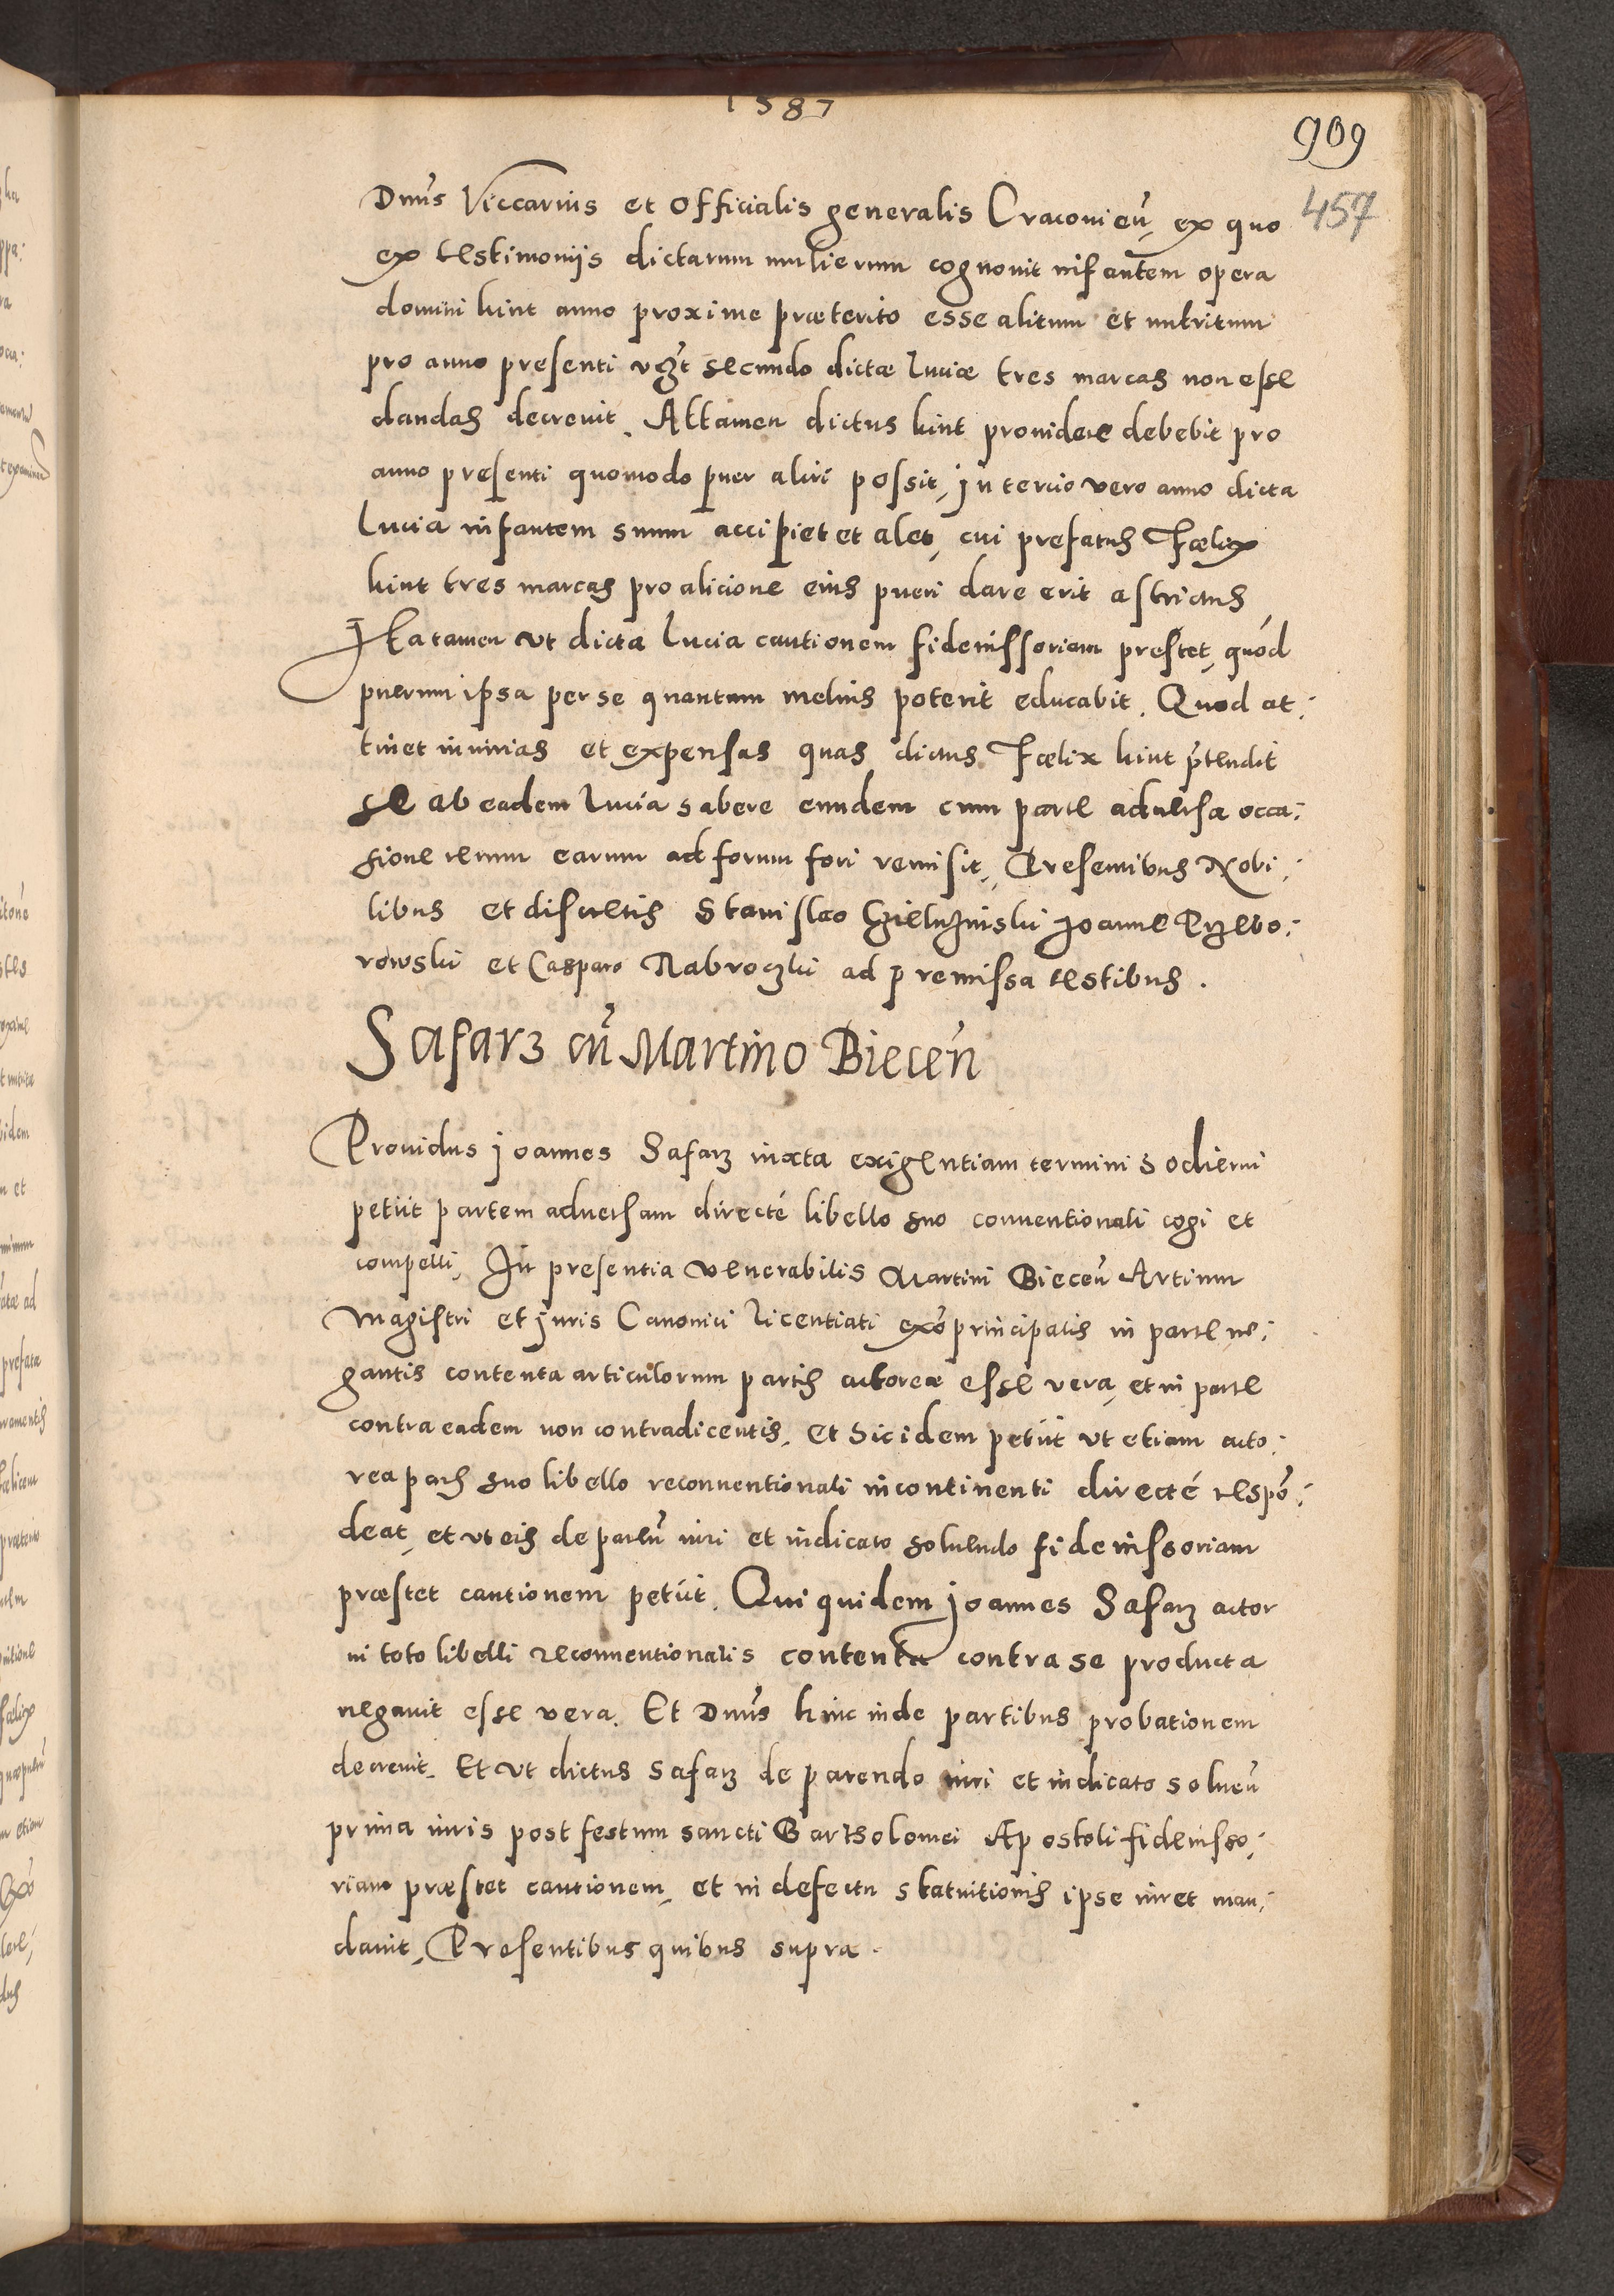 1587
909
457
Dnūs Viccarius et Officialis generalis Cracovieñ, ex quo
ex testimoniis dictarum mulierum cognovit infantem opera
domini kint anno proxime præterito esse alitum et nutritum
pro anno presenti vɀt secundo dictæ Luciæ tres marcas non esse
dandas decrevit. Attamen dictus kint providere debebit pro
anno presenti quomodo puer aliri possit, in tercio vero anno dicta
Lucia infantem suum accipiet et alet, cui prefatus Fœlix
kint tres marcas pro alicione eius pueri dare erit astrictus
Ita tamen vt dicta Lucia cautionem fideiussoriam prestet, quód
puerum ipsa per se quantum melius poterit educabit. Quod at:
tinet iniurias et expensas quas dictus Fœlix kint p̃tendit
se ab eadem Lucia habere eundem cum parte adversa occa:
sione rerum earum ad forum fori remisit, Presentibus Nobi:
libus et discretis Stanislao Gieluzinski Joanne Przebo:
rowski et Casparo Nabroczki ad premissa testibus.
Safarz cū Martino Biecen̄
Providus Joannes Safarz iuxta exigentiam termini hodierni
petiit partem adversam directé libello suo conventionali cogi et
compelli, In presentia venerabilis Martini Bieceñ Artium
Magistri et Juris Canonici licentiati exõ principalis in parte ne:
gantis contenta articulorum partis actoreæ esse vera, et in parte
contra eadem non contradicentis, et sic idem petiit vt etiam acto:
rea pars suo libello reconventionali incontinenti directé respõ:
deat, et vt eis de pareñ iuri et iudicato solvendo fideiussoriam
præstet cautionem petiit. Qui quidem Joannes Safarz actor
in toto libelli reconventionalis contenta contra se producta
negavit esse vera. Et Dnūs hinc inde partibus probationem
decrevit. Et vt dictus Safarz de parendo iuri et iudicato solveñ
prima iuris post festum sancti Bartholomei Apostoli fideiusso:
riam præstet cautionem, et in defectu statuitionis ipse iuret man:
davit, Presentibus quibus supra.